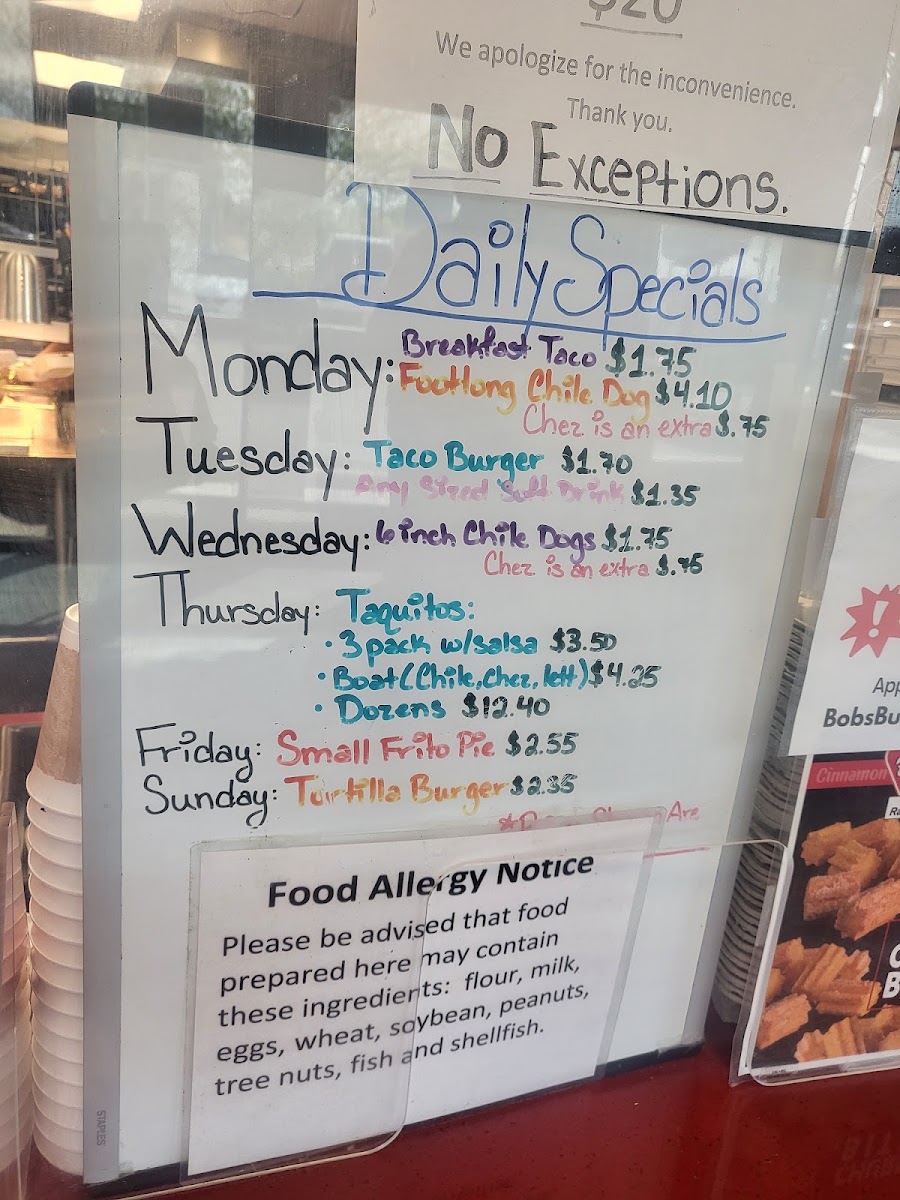 $20
We apologize for the inconvenience.
Thank you.
No Exceptions.
Daily Specials
Monday: Breakfast Taco $1.75
Footlong Chile Dog $4.10
Chez is an extra $.75
Tuesday: Taco Burger $1.70
Any Sized Soft Drink $1.35
Wednesday: 6 inch Chile Dogs $1.75
Chez is an extra $.75
Thursday: Taquitos:
• 3 pack w/salsa $3.50
• Boat (Chile, Chez, lett) $4.25
• Dozens $12.40
Friday: Small Frito Pie $2.55
Sunday: Tortilla Burger $2.35
Are
Food Allergy Notice
Please be advised that food
prepared here may contain
these ingredients: flour, milk,
eggs, wheat, soybean, peanuts,
tree nuts, fish and shellfish.
STAPLES
!
App
BobsBu
Cinnamon